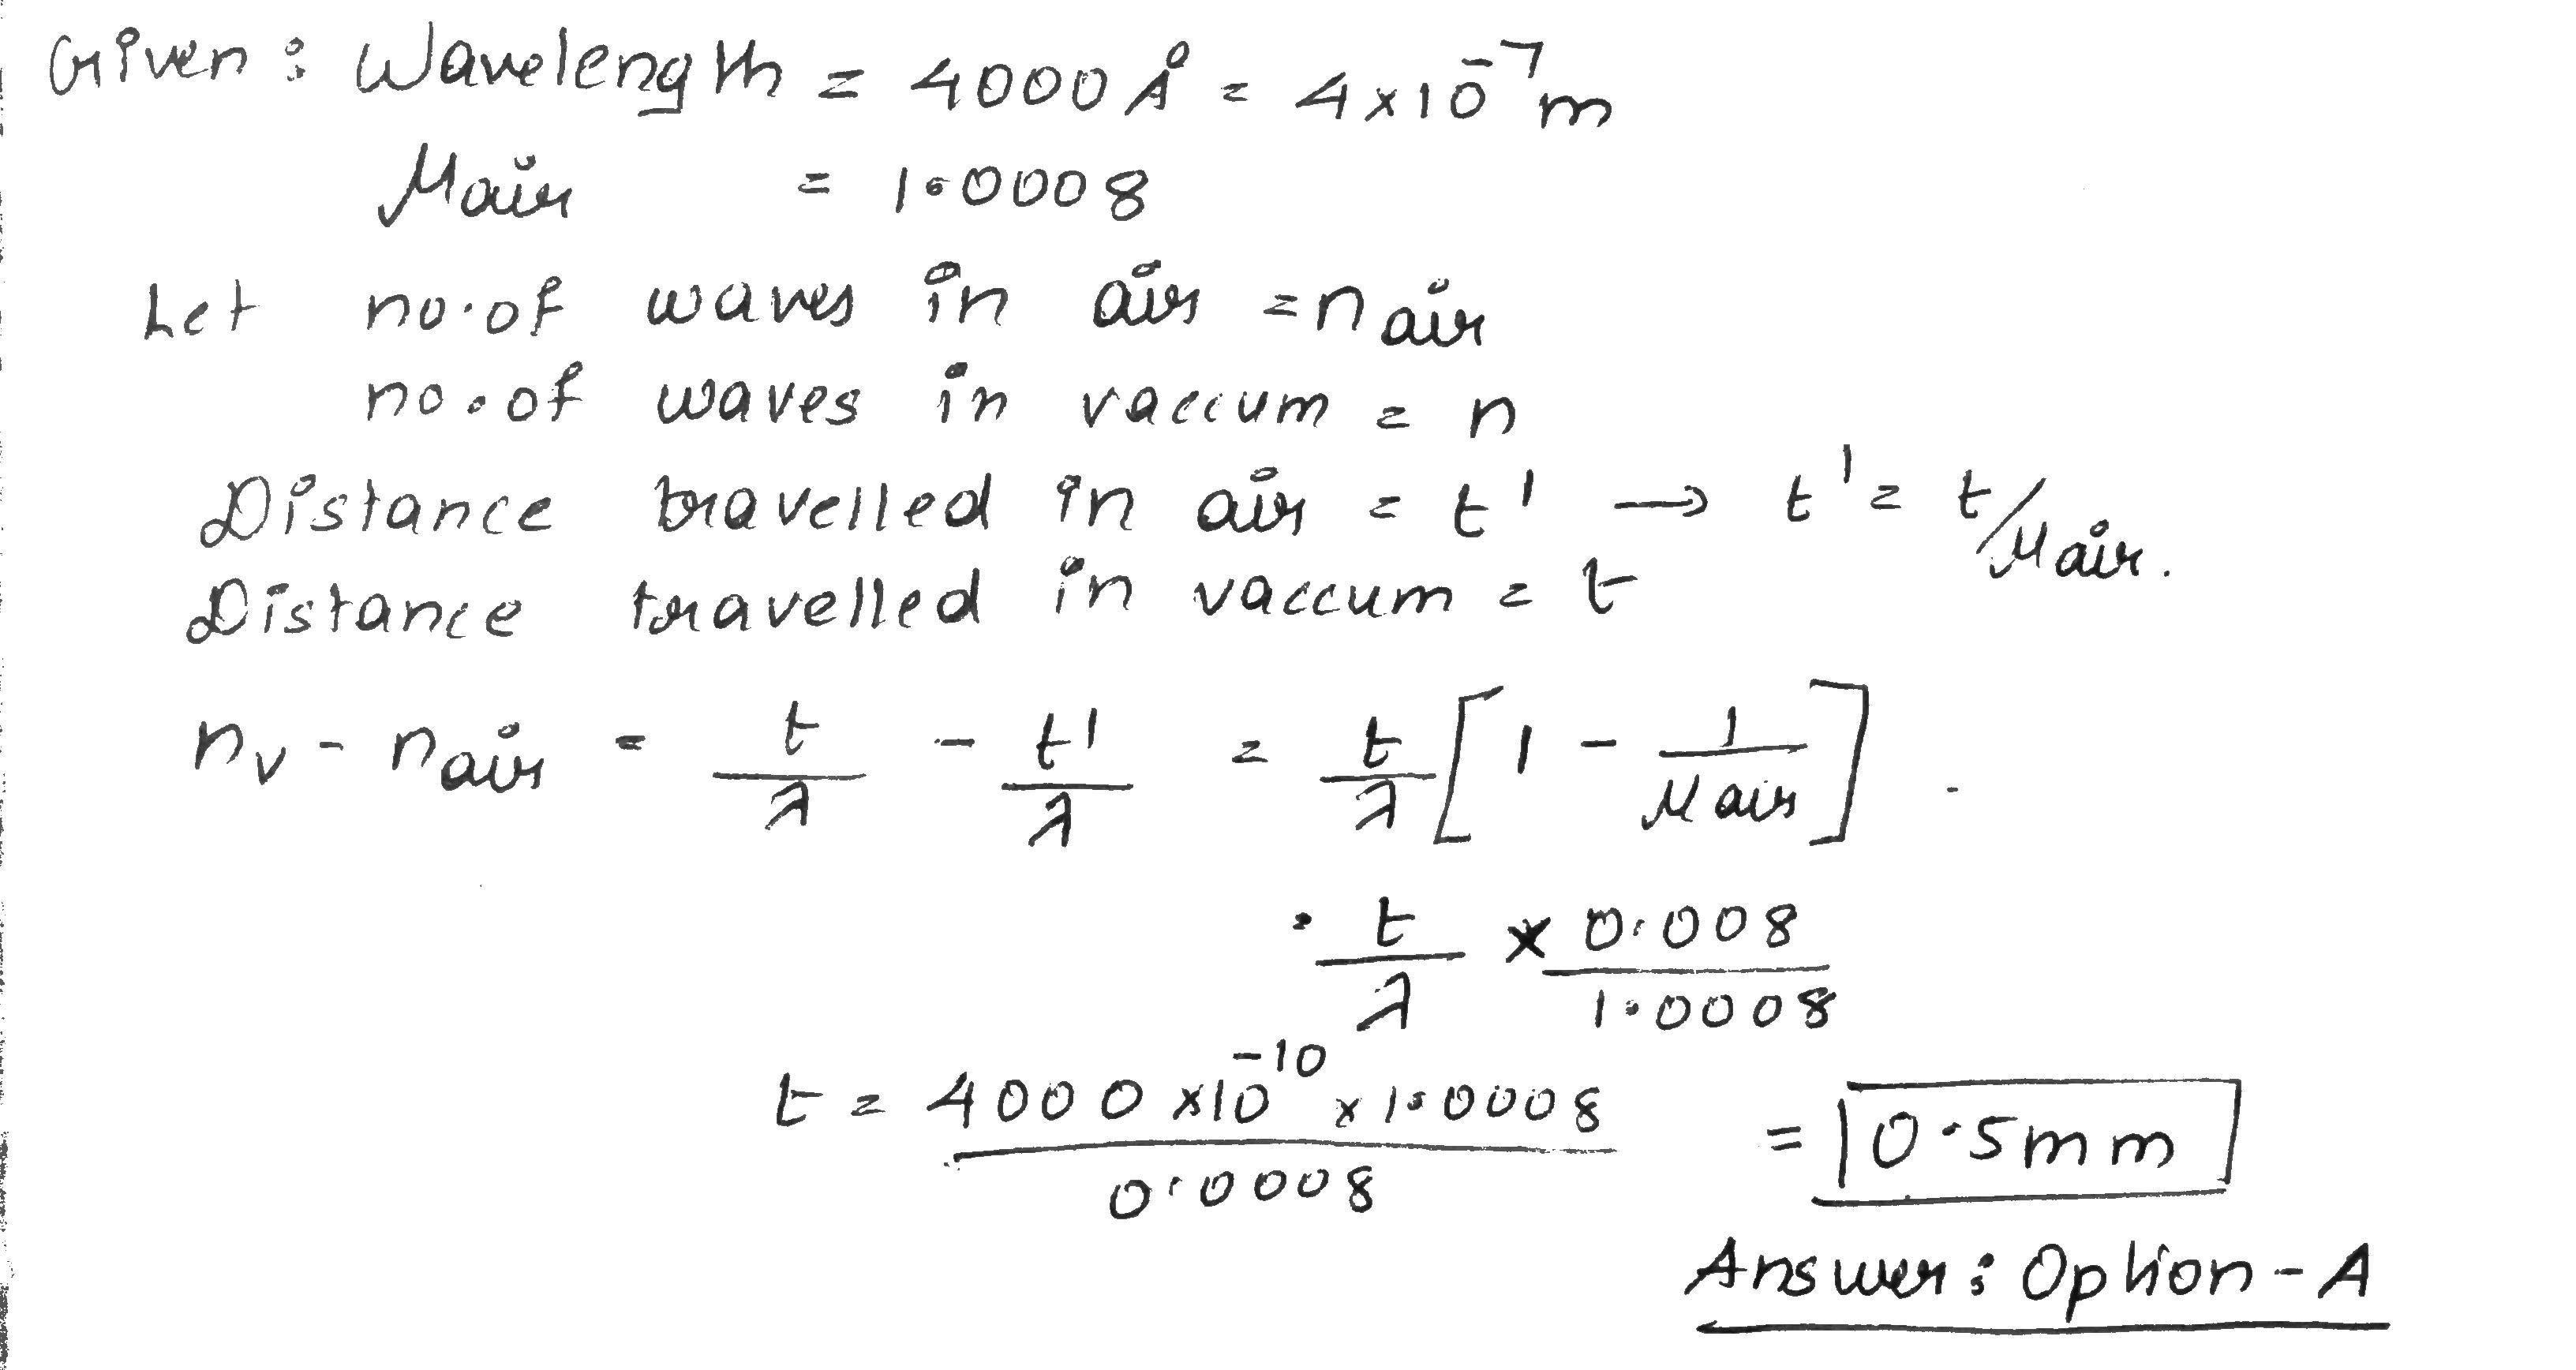 Given : Wavelength = 4000 Å = 4×10⁻⁷ m
μair = 1.0008
Let no. of waves in air = nair
no. of waves in vaccum = n
Distance travelled in air = t' → t' = t/μair.
Distance travelled in vaccum = t
nv - nair = t/λ - t'/λ = t/λ [1 - 1/μair] .
= t/λ × 0.008/1.0008
t = 4000 ×10⁻¹⁰ × 1.0008 / 0.0008 = 0.5mm
Answer : Option - A